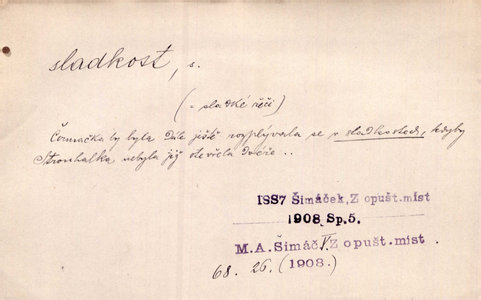 sladkost, s.
(= sladké řeči)
Čermačka by byla dále ještě rozplývala se v sladkostech, kdyby
Strouhalka nebyla jí otevřela dveře ..
1887 Šimáček, Z opušt. míst
1908 Sp. 5.
M. A. Šimáč Z opušt. míst
68. 26. (1908.)